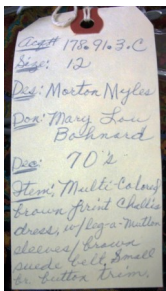 Acq# 178.91.3.C
Size: 12
Des: Morton Myles
Don: Mary Lou
Bohnard
Dec: 70's
Item: Multi-Colored
brown print Challis
dress, w/leg-a-Mutton
sleeves/brown
suede belt, Small
br button trim.